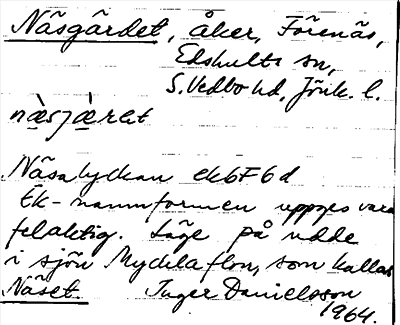 Näsgärdet, åker, Förenäs,
Edshults sn,
S. Vedbo hd, Jönk. l.
nàsjæ̀ret
Näsalyckan ek 6F6d
Ek-namnformen uppges vara
felaktig. Läge på udde
i sjön Mycklaflon, som kallas
Näset. Inger Danielsson
1964.